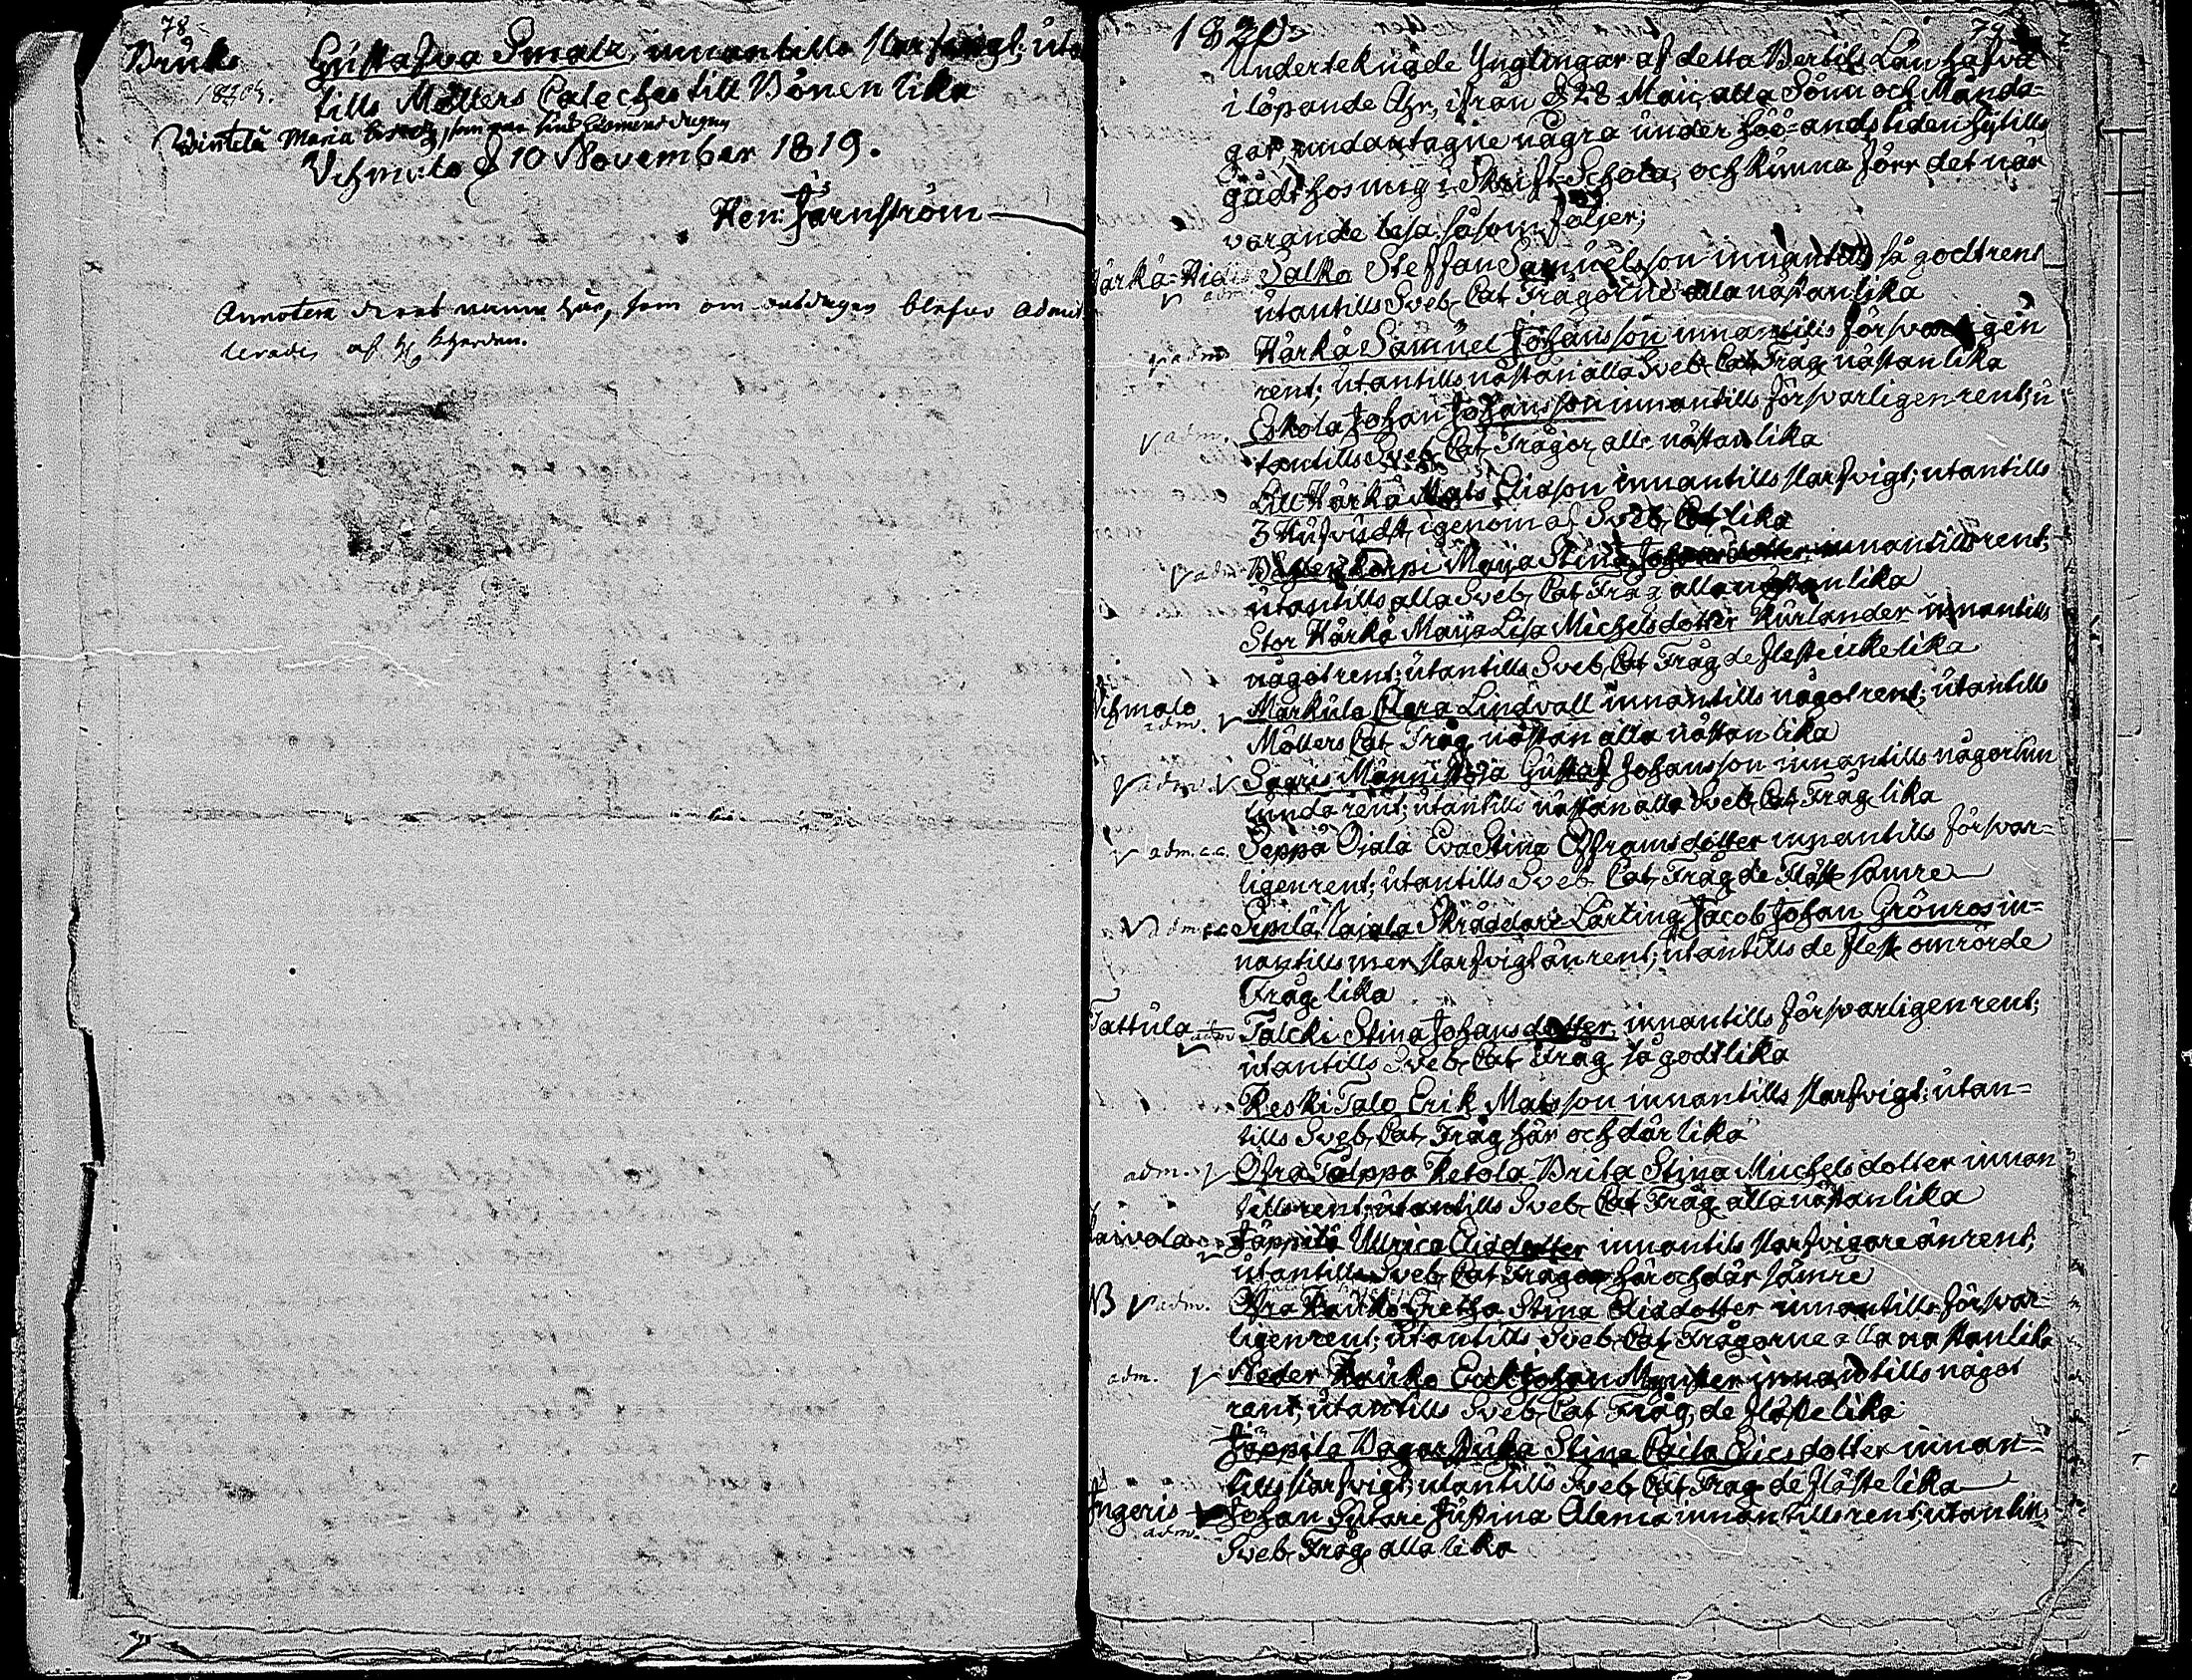 78
Brúks Gústafva Smalz, innantills slarfvigt; úta
tills Möllers Cateches till Bönen lika
Vehmalo d 10 November 1819.
Hen: Järnström
Annotera namn här, som om
af
1820.
79
Underteknade Ynglingar af detta Bertils Län hafva
i löpande Åhr, ifrån d 28 Maii, alla Sönn och Månda-
gar, undantagne några under höö-ands tiden hijtills
gådt hos mig i Skrift-Schola, och kunna förr det när
varande läsa såsom följer;
Härkä Salko Steffan Samuelsson innantills så godt rent
útantills Sveb. Cat. Frågorne alla nästan lika
adm. Härkä Samúel Johansson innantills försvarligen
rent; útantills nästan alla Sveb. Cat. Fråg. nästan lika
adm. Eskola Johan Johansson innantills försvarligen rent; ú
tantills Sveb. Cat. Frågor alla nästan lika
Lill Härkä Mats Eliasson innantills slarfvigt; utantills
3 Húfvudst. igenom af Sveb. Cat. lika
adm. Maija Stina innantills rent;
útantills alla Sveb. Cat. Fråg. alla nästan lika
Stor Härkä Maija Lisa Michelsdotter Kúrlander innantills
något rent; útantills Sveb. Cat. Fråg. de fleste icke lika
Vehmalo adm. Markúla Clara Lindvall innantills något rent; útantills
Möllers Cat. Fråg. nästan alla nästan lika
adm. Sagris Männistöjä Gústaf Johansson innantills någorlun
lunda rent; útantills nästan alla Sveb. Cat. Fråg. lika
adm. c.c. Seppä Ojala Eva Stina Effraimsdotter innantills försvar-
ligen rent; útantills Sveb. Cat. Fråg. de fläste sämre
adm. c.c. Sipilä Lajala Skräddare Lärling Jacob Johan Grönros in-
nantills mer slarfvigt än rent; útantills de flest omrörde
Fråg. lika
Tattúla adm. Talcki Stina Johansdotter innantills försvarligen rent;
útantills Sveb. Cat. Fråg. så godt lika
Keski Talo Erik Matsson innantills slarfvigt; útan-
tills Sveb. Cat. Fråg. här och där lika
adm. Öfra Talppo Ketola Brita Stina Michelsdotter innan
tills rent; útantills Sveb. Cat. Fråg. alla nästan lika
Kaivola Jäppilä Ullrica Eliædotter innantils slarfvigare än rent;
útantills Sveb. Cat. Frågor här och där sämre
adm. Öfra Kaúko Gretha Stina Eliædotter innantills försvar-
ligen rent; útantills Sveb. Cat. Frågorne alla nästan lika
adm. Neder Kaúko Erick Johan Mynster innantills något
rent; útantills Sveb. Cat. Fråg. de fläste lika
Jäppilä Stina Caisa Ericsdotter innan-
tills slarfvigt; utantills Sveb. Cat. Fråg. de fläste lika
Ingeris adm. Johan Sútari Jústina Alenia innantills rent; utantills
Sveb. Fråg. alla lika